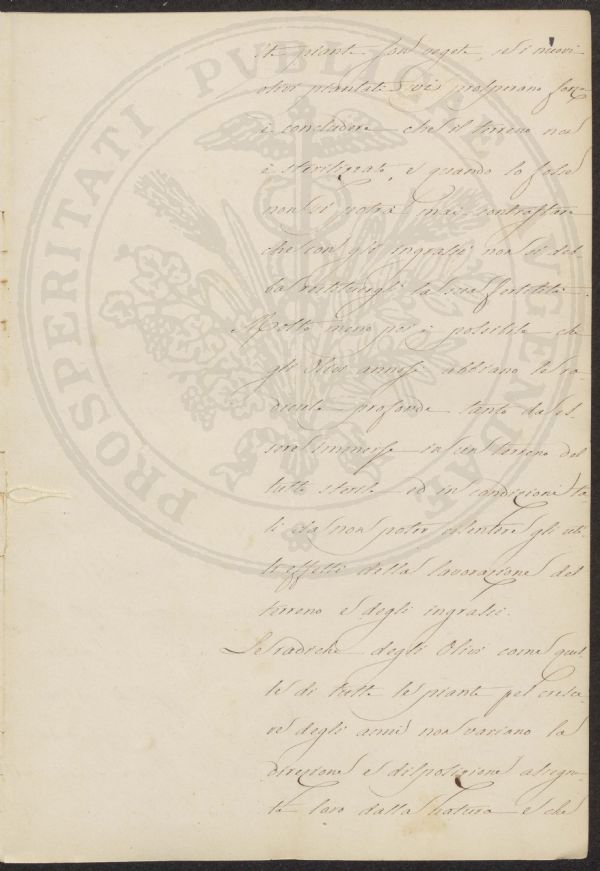 ste piante son vegete, se i nuovi
olivi piantati vi prosperano forza
è concludere che il terreno non
è sterilizzato, e quando lo fosse
non si potrà mai contrastare
che con gli ingrassi non si deb-
ba restituirgli la sua fertilità.
Molto meno poi è possibile che
gli Olivi annosi abbiano le ra-
dicule profonde tanto da es-
sere immerse in un terreno del
tutto sterile ed in condizione ta-
li da non poter risentere gli uti-
li effetti della lavorazione del
terreno e degli ingrassi.
Le radiche degli Olivi come quel-
le di tutte le piante pel cresce-
re degli anni non variano la
direzione e disposizione assegna-
ta loro dalla Natura e che
PROSPERITATI PUBLICAE AUGENDAE